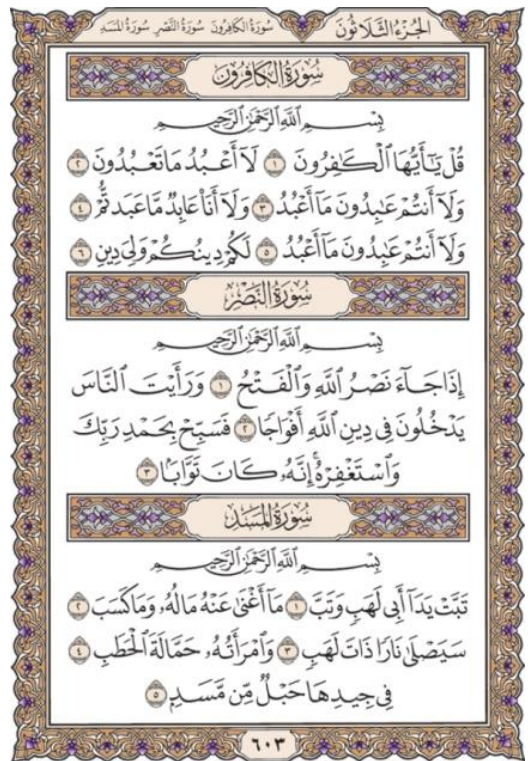 الجُزْءُ الثَّلَاثُونَ سُورَةُ الكَافِرُونَ سُورَةُ النَّصْرِ سُورَةُ المَسَدِ
سُورَةُ الكَافِرُونَ
بِسْمِ اللَّهِ الرَّحْمَٰنِ الرَّحِيمِ
قُلْ يَٰٓأَيُّهَا ٱلْكَٰفِرُونَ ١ لَآ أَعْبُدُ مَا تَعْبُدُونَ ٢
وَلَآ أَنتُمْ عَٰبِدُونَ مَآ أَعْبُدُ ٣ وَلَآ أَنَا۠ عَابِدٌ مَّا عَبَدتُّمْ ٤
وَلَآ أَنتُمْ عَٰبِدُونَ مَآ أَعْبُدُ ٥ لَكُمْ دِينُكُمْ وَلِيَ دِينِ ٦
سُورَةُ النَّصْرِ
بِسْمِ اللَّهِ الرَّحْمَٰنِ الرَّحِيمِ
إِذَا جَآءَ نَصْرُ ٱللَّهِ وَٱلْفَتْحُ ١ وَرَأَيْتَ ٱلنَّاسَ
يَدْخُلُونَ فِي دِينِ ٱللَّهِ أَفْوَاجًا ٢ فَسَبِّحْ بِحَمْدِ رَبِّكَ
وَٱسْتَغْفِرْهُۚ إِنَّهُۥ كَانَ تَوَّابًا ٣
سُورَةُ المَسَدِ
بِسْمِ اللَّهِ الرَّحْمَٰنِ الرَّحِيمِ
تَبَّتْ يَدَآ أَبِي لَهَبٍ وَتَبَّ ١ مَآ أَغْنَىٰ عَنْهُ مَالُهُۥ وَمَا كَسَبَ ٢
سَيَصْلَىٰ نَارًا ذَاتَ لَهَبٍ ٣ وَٱمْرَأَتُهُۥ حَمَّالَةَ ٱلْحَطَبِ ٤
فِي جِيدِهَا حَبْلٌ مِّن مَّسَدٍ ٥
٦٠٣